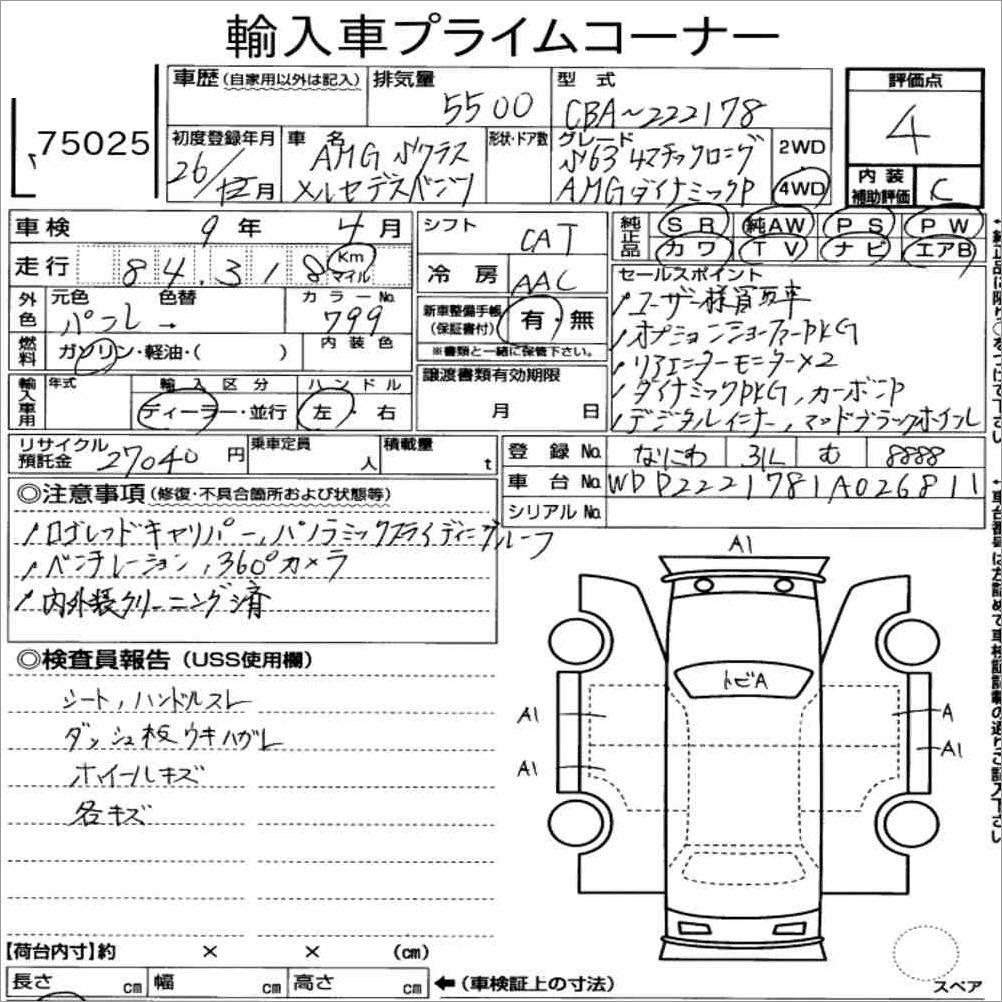 輸入車プライムコーナー
75025
車歴(自家用以外は記入)
排気量
5500
型 式
CBA~222178
評価点
4
初度登録年月
26/12月
車 名
AMG Sクラス
メルセデスベンツ
形状・ドア数
グレード
S63 4マチックロング
AMGダイナミックP
2WD
4WD
内装補助評価
C
車検 9年 4月
走行 84,318 Km マイル
シフト
CAT
冷房
AAC
純正品
SR 純AW PS PW
カワ TV ナビ エアB
外色
元色
色替
カラーNo.
799
燃料
ガソリン・軽油・( )
内装色
新車整備手帳(保証書付)
有・無
※書類と一緒に保管下さい。
セールスポイント
オプションショーファーPKG
リアエンターモニター×2
ダイナミックPKG、カーボンP
輸入車用
年式
輸入区分
ディーラー・並行
ハンドル
左・右
譲渡書類有効期限
月 日
リサイクル預託金 27040円
乗車定員
人
積載量
t
登録No. なにわ 31L む 8888
車台No. WDD2221781A026811
シリアルNo.
◎注意事項(修復・不具合箇所および状態等)
パノラミックスライディングルーフ
ベンチレーション、360°カメラ
内外装クリーニング済
◎検査員報告(USS使用欄)
シート、ハンドルスレ
ダッシュ板ウキハガレ
ホイールキズ
各キズ
A1
トビA
A1
A
A1
A1
【荷台内寸】約 × × (cm)
長さ cm 幅 cm 高さ cm
←(車検証上の寸法)
スペア